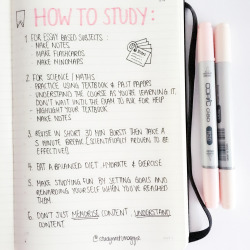 HOW TO STUDY:
1. FOR ESSAY BASED SUBJECTS:
MAKE NOTES
MAKE FLASHCARDS
MAKE MINDMAPS
2. FOR SCIENCE / MATHS
PRACTICE USING TEXTBOOK & PAST PAPERS
UNDERSTAND THE COURSE AS YOU'RE LEARNING IT.
DON'T WAIT UNTIL THE EXAM TO ASK FOR HELP
HIGHLIGHT YOUR TEXTBOOK
MAKE NOTES
3. REVISE IN SHORT 30 MIN BURSTS THEN TAKE A
5 MINUTE BREAK (SCIENTIFICALLY PROVEN TO BE
EFFECTIVE!)
4. EAT A BALANCED DIET, HYDRATE & EXERCISE
5. MAKE STUDYING FUN BY SETTING GOALS AND
REWARDING YOURSELF WHEN YOU'VE REACHED
THEM.
6. DON'T JUST MEMORISE CONTENT, UNDERSTAND
CONTENT.
copic ciao